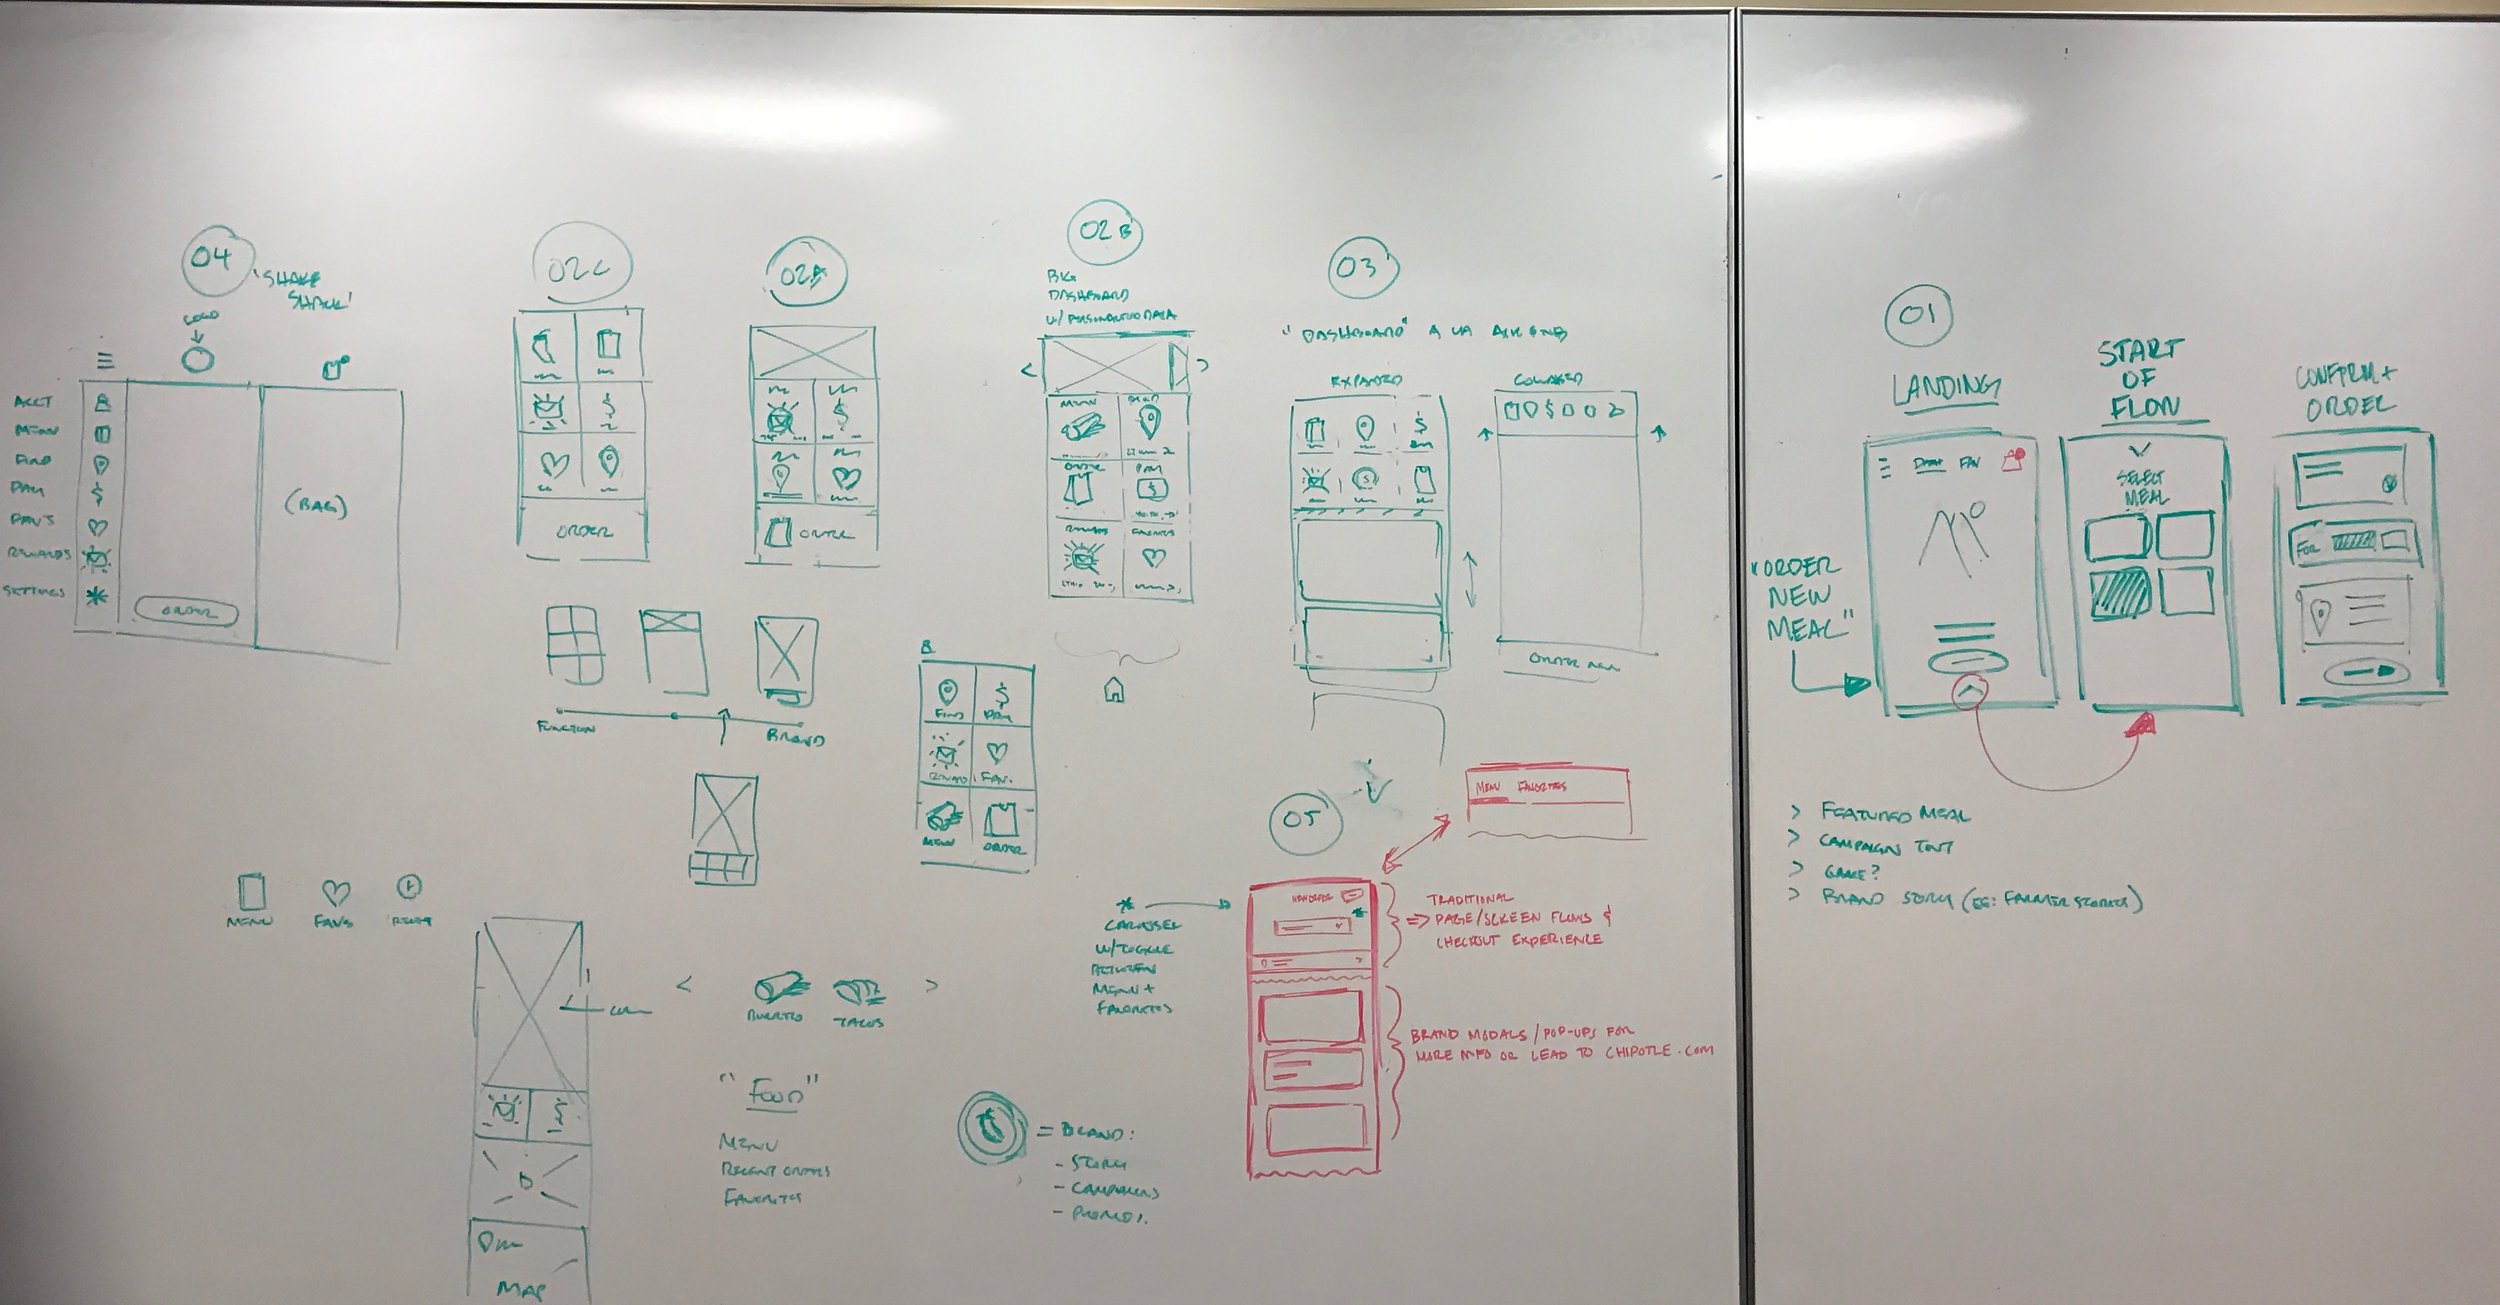 04
'SHAKE
SHACK'
LOGO
ACCT
MENU
FIND
PAY
FAVS
REWARDS
SETTINGS
(BAG)
ORDER
02C
ORDER
02A
ORDER
FUNCTION
BRAND
02B
BK:
DASHBOARD
W/ PERSONALIZED DATA
MENU
ORDER
PAY
REWARDS
FAVORITES
B
FIND
PAY
REWARD
FAV.
MENU
ORDER
03
"DASHBOARD" A LA
EXPANDED
COLLAPSED
ORDER NEW
01
LANDING
START
OF
FLOW
CONFIRM +
ORDER
FAV
SELECT
MEAL
FOR
"ORDER
NEW
MEAL"
> FEATURED MEAL
> CAMPAIGN TOUT
> GAME?
> BRAND STORY (EG: FARMER STORIES)
MENU
FAVS
RECENT
MAP
< >
BURRITO
TACOS
"FOOD"
MENU
RECENT ORDERS
FAVORITES
= BRAND:
- STORY
- CAMPAIGNS
- PROMOS.
05
MENU FAVORITES
* CAROUSEL
W/TOGGLE
BETWEEN
MENU +
FAVORITES
NEW ORDER
TRADITIONAL
=> PAGE/SCREEN FLOWS &
CHECKOUT EXPERIENCE
BRAND MODALS / POP-UPS FOR
MORE INFO OR LEAD TO CHIPOTLE.COM